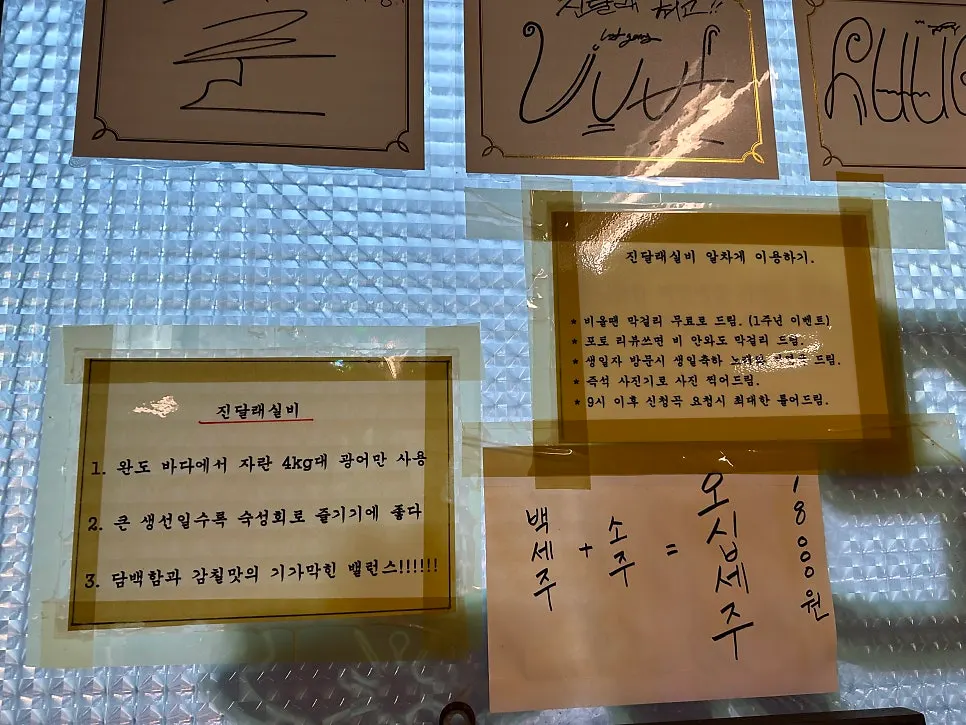 진달래
let gang
진달래실비 알차게 이용하기.
* 비올땐 막걸리 무료로 드림. (1주년 이벤트)
* 포토 리뷰쓰면 비 안와도 막걸리 드림.
* 생일자 방문시 생일축하 드림.
* 즉석 사진기로 사진 찍어드림.
* 9시 이후 신청곡 요청시 최대한 틀어드림.
진달래실비
1. 완도 바다에서 자란 4kg대 광어만 사용
2. 큰 생선일수록 숙성회로 즐기기에 좋다
3. 담백함과 감칠맛의 기가막힌 밸런스!!!!!!
백세주 + 소주 = 오십세주
18000원